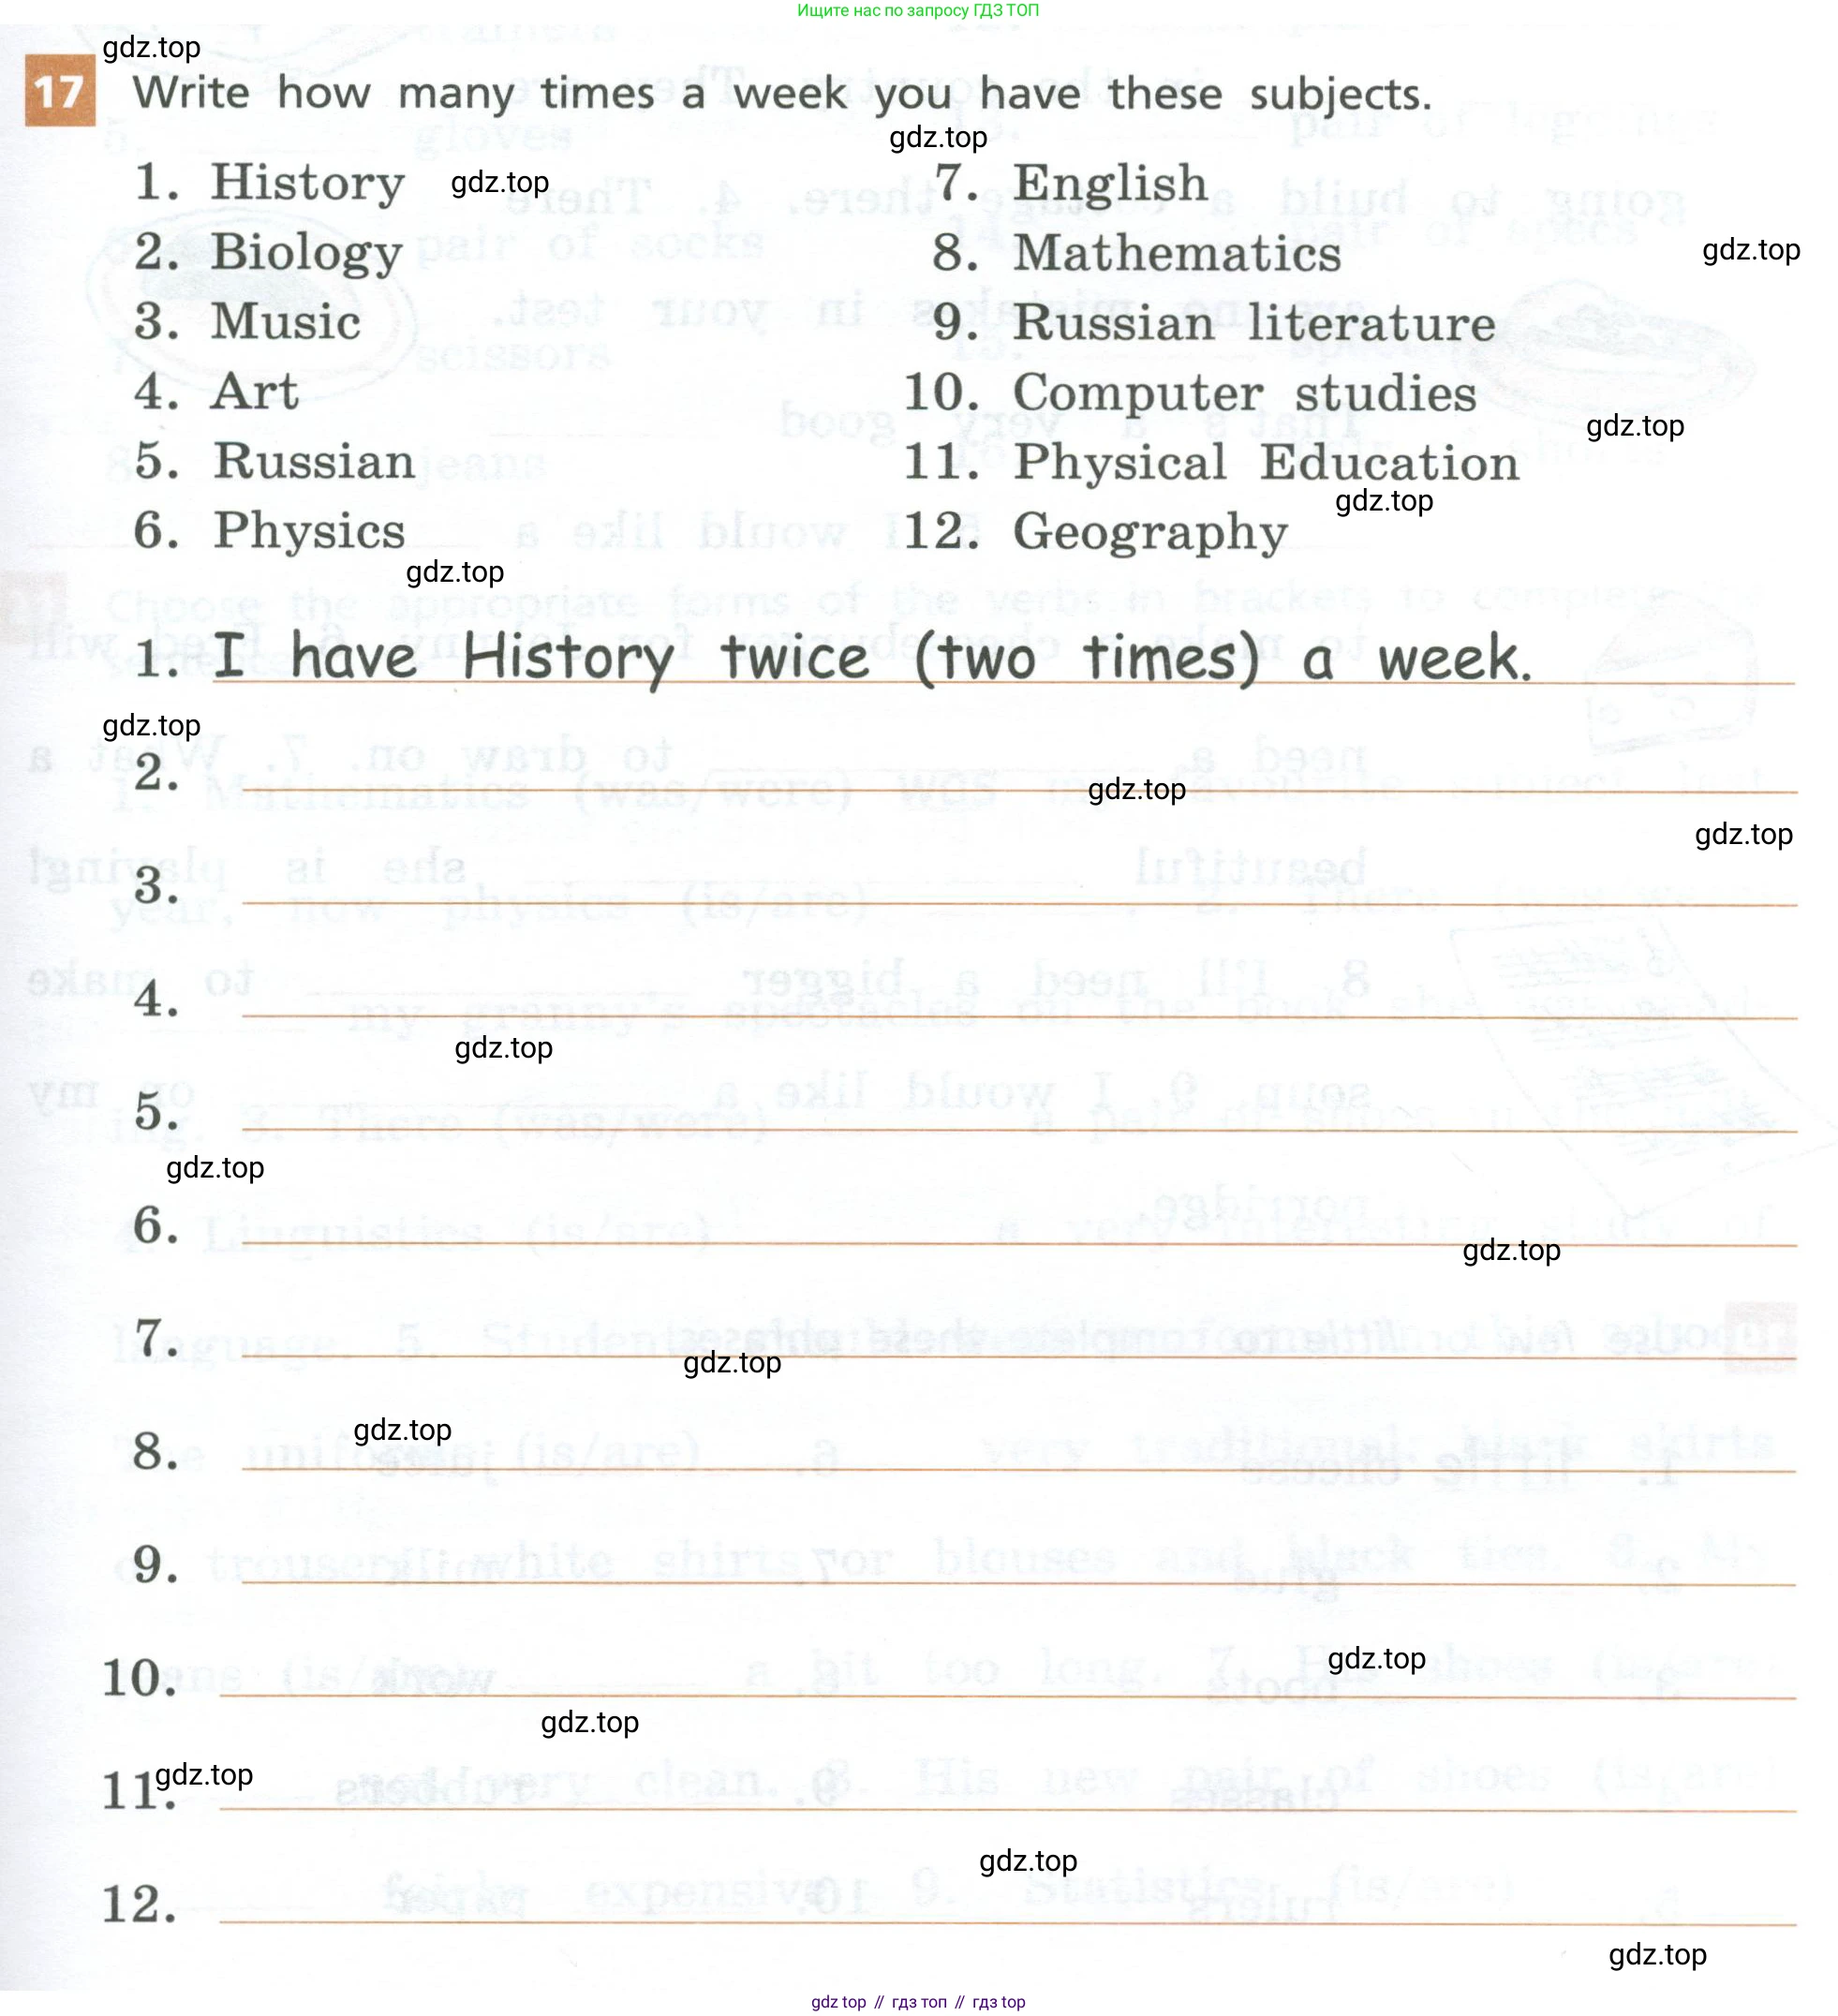 Ищите нас по запросу ГДЗ ТОП
gdz.top
17 Write how many times a week you have these subjects.
gdz.top
1. History gdz.top
2. Biology
3. Music
4. Art
5. Russian
6. Physics
gdz.top
7. English
8. Mathematics
gdz.top
9. Russian literature
10. Computer studies
gdz.top
11. Physical Education
gdz.top
12. Geography
1. I have History twice (two times) a week.
gdz.top
2.
gdz.top
gdz.top
3.
4.
gdz.top
5.
gdz.top
6.
gdz.top
7.
gdz.top
gdz.top
8.
9.
gdz.top
10.
gdz.top
gdz.top
11.
gdz.top
12.
gdz.top
gdz top // гдз топ // гдз top